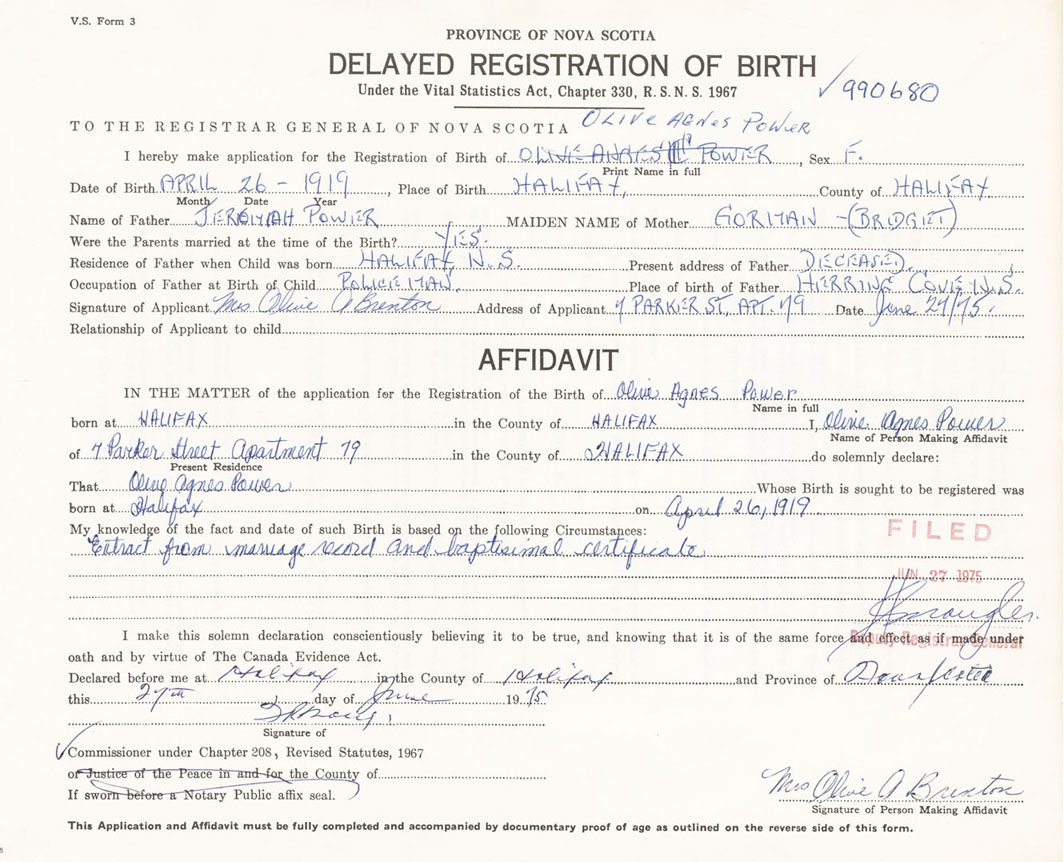 V.S. Form 3
PROVINCE OF NOVA SCOTIA
DELAYED REGISTRATION OF BIRTH
Under the Vital Statistics Act, Chapter 330, R.S.N.S. 1967
990680
OLIVE AGNES POWER
TO THE REGISTRAR GENERAL OF NOVA SCOTIA
I hereby make application for the Registration of Birth of OLIVE POWER, Sex F.
Print Name in full
Date of Birth APRIL 26 - 1919, Place of Birth HALIFAX, County of HALIFAX
Month Date Year
Name of Father JEREMIAH POWER MAIDEN NAME of Mother GORMAN - (BRIDGET)
Were the Parents married at the time of the Birth? YES.
Residence of Father when Child was born HALIFAX, N.S. Present address of Father DECEASED.
Occupation of Father at Birth of Child POLICEMAN. Place of birth of Father HERRING COVE N.S.
Signature of Applicant Mrs Olive A Brenton Address of Applicant 7 PARKER ST, APT. 79 Date June 27/75.
Relationship of Applicant to child
AFFIDAVIT
IN THE MATTER of the application for the Registration of the Birth of Olive Agnes Power
Name in full
born at HALIFAX in the County of HALIFAX I, Olive Agnes Power
Name of Person Making Affidavit
of 7 Parker Street Apartment 79 in the County of HALIFAX do solemnly declare:
Present Residence
That Olive Agnes Power Whose Birth is sought to be registered was
born at Halifax on April 26, 1919
My knowledge of the fact and date of such Birth is based on the following Circumstances:
Extract from marriage record and baptisimal certificate
FILED
JUN 27 1975
Deputy Registrar General
I make this solemn declaration conscientiously believing it to be true, and knowing that it is of the same force and effect as if made under
oath and by virtue of The Canada Evidence Act.
Declared before me at Halifax in the County of Halifax and Province of
this 27th day of June 1975
Signature of
Commissioner under Chapter 208, Revised Statutes, 1967
or Justice of the Peace in and for the County of
If sworn before a Notary Public affix seal.
Mrs Olive A Brenton
Signature of Person Making Affidavit
This Application and Affidavit must be fully completed and accompanied by documentary proof of age as outlined on the reverse side of this form.